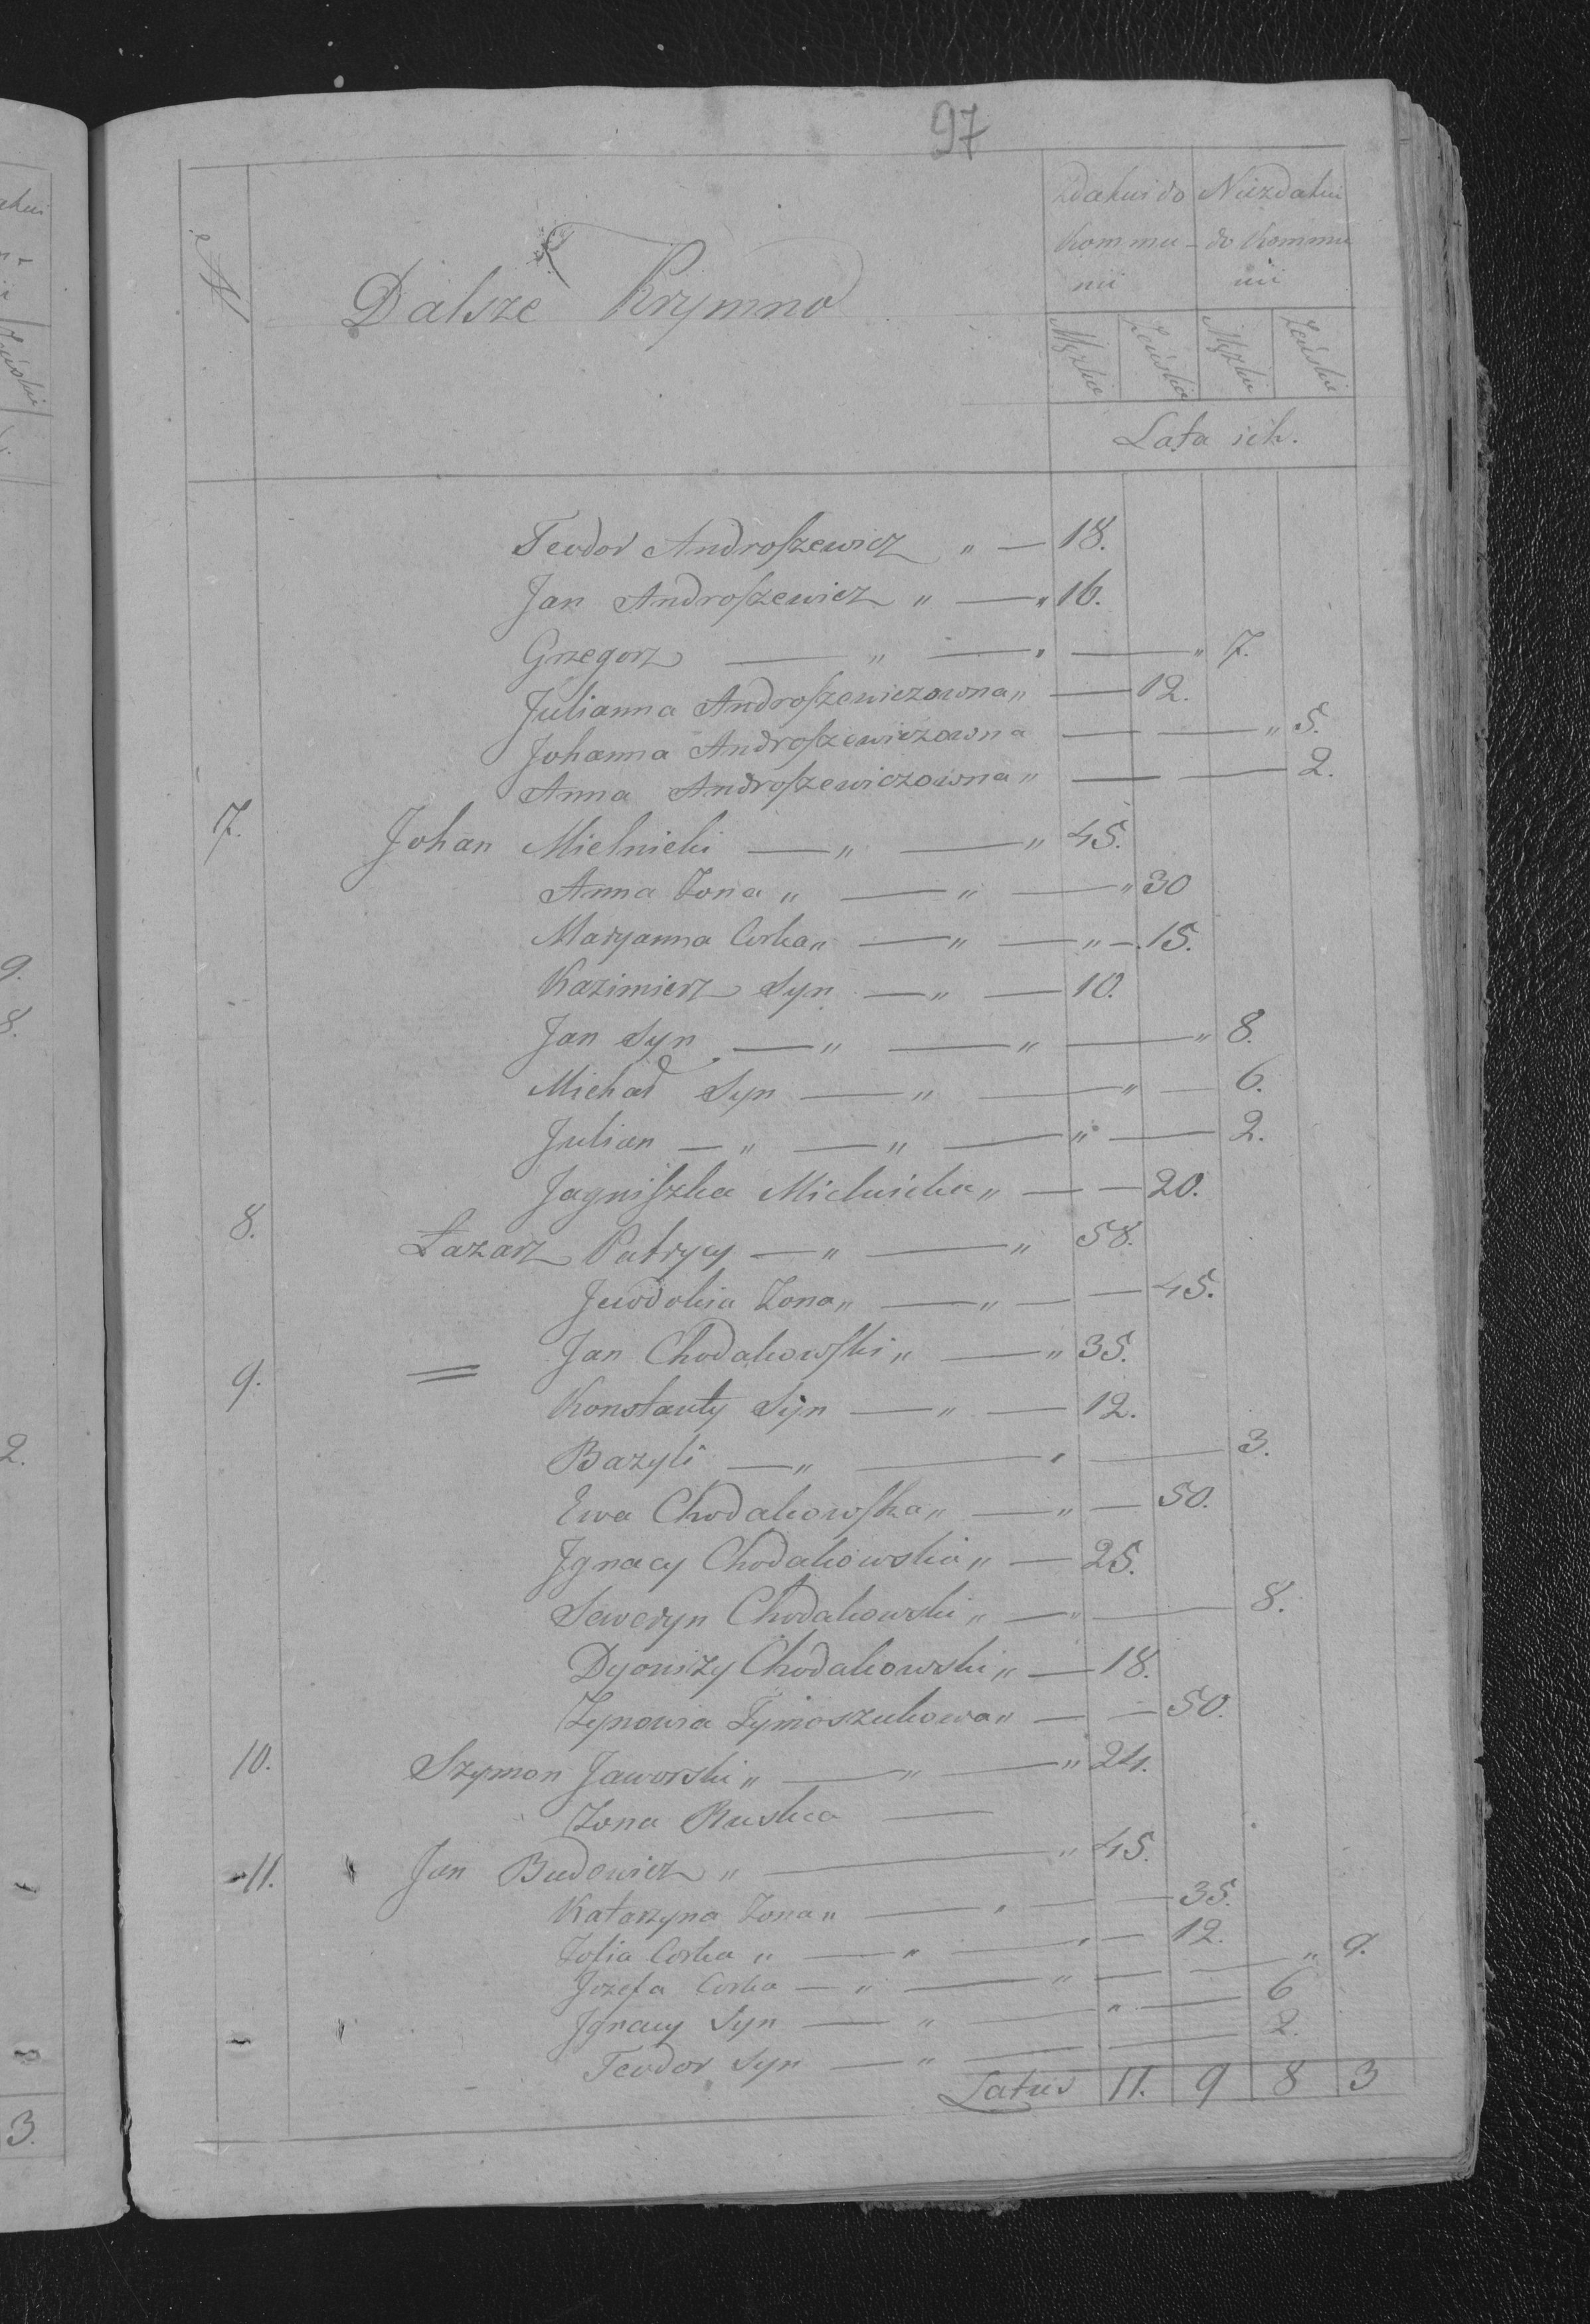 97
№
Dalsze Krymno
Zdatni do Niezdatni
Kommu- do Kommu
nii nii
Męzkie Zeńskie Męzkie Zeńskie
Lata ich.
Teodor Androszewicz " — 18.
Jan Androszewicz " — " 16.
Grzegorz — " — " — " 7.
Julianna Androszewiczowna " — 12.
Johanna Androszewiczowna — — " 5.
Anna Androszewiczowna " — — 2.
7. Johan Mielnicki — " — " 45.
Anna Zona " — " — " 30
Maryanna Corka " — " — " — 15.
Kazimierz Syn — " — 10.
Jan Syn — " — " — " 8.
Michał Syn — " — " — 6.
Julian — " — " — " — 2.
Jagniszka Mielnicka " — — 20.
8. Łazarz Patrycy — " — " 58.
Jewdokia Zona " — " — — 45.
9. = Jan Chodakowski " — " 35.
Konstanty Syn — " — 12.
Bazyli — " — " — 3.
Ewa Chodakowska " — " — 50.
Jgnacy Chodakowski " — 25.
Seweryn Chodakowski " — " — 8.
Dyonizy Chodakowski " — 18.
Zynowia Tymoszukowa " — — 50.
10. Szymon Jaworski " — " — " 24.
Zona Ruska —
11. Jan Budowicz " — " 45.
Katarzyna Zona " — " — — 35.
Zofia Corka " — " — " — 12.
Jozefa Corka — " — " — — " 9.
Jgnacy Syn — " — " — 6
Teodor Syn — " — — 2.
Latus 11. 9 8 3
9.
8.
2.
3.